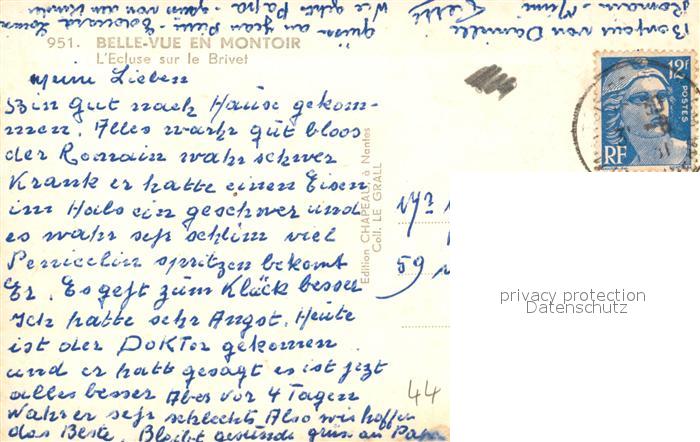 951. - BELLE-VUE EN MONTOIR
L'Ecluse sur le Brivet
meine Lieben
Bin Gut nach Hause gekom-
men. Alles wahr gut bloos
der Romain wahr schwer
Krank er hatte einen Eisen
im Hals ein geschwer und
es wahr sehr schlim viel
Penicelin spritzen bekomt
Er. Es geht zum Klück besser
Ich hatte sehr Angst. Heute
ist der DoKTor gekomen
und er hatt gesagt es ist jezt
alles besser Aber vor 4 Tagen
wahr er sehr schlecht Also wir hoffen
das Beste. Bleibt gesund grüs an Papa
Bonjour von Danielle
Romain - Mimi
Edition CHAPEAU à Nantes
Coll. LE GRALL
59
44
12F
POSTES
RF
privacy protection
Datenschutz